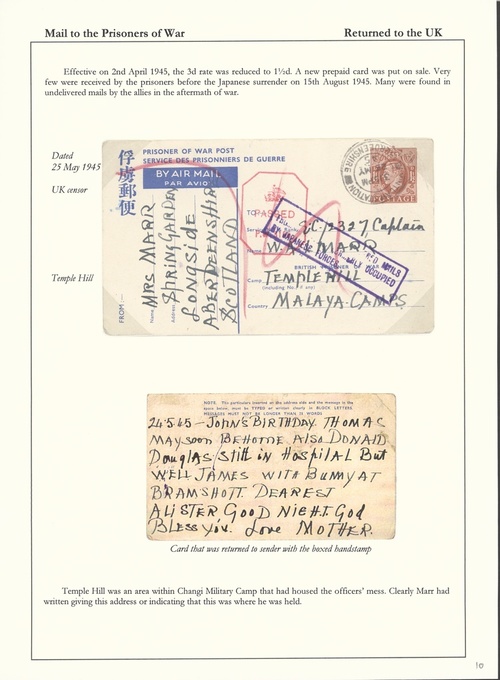 Mail to the Prisoners of War
Returned to the UK
Effective on 2nd April 1945, the 3d rate was reduced to 1½d. A new prepaid card was put on sale. Very
few were received by the prisoners before the Japanese surrender on 15th August 1945. Many were found in
undelivered mails by the allies in the aftermath of war.
Dated
25 May 1945
UK censor
Temple Hill
俘虜郵便
PRISONER OF WAR POST
SERVICE DES PRISONNIERS DE GUERRE
BY AIR MAIL
PAR AVION
FROM :—
Name
MRS MARR
Address
LONGSIDE
ABERDEENSHIRE
SCOTLAND
PASSED
POSTAGE
TO
2327, Captain
Name W. R. MARR
BRITISH PRISONER OF WAR
Camp TEMPLE HILL
(including No. if any)
Country MALAYA CAMPS
MAILS
BY JAPANESE FORCES
OCCUPIED
NOTE. The particulars inserted on the address side and the message in the
space below, must be TYPED or written clearly in BLOCK LETTERS.
MESSAGES MUST NOT BE LONGER THAN 25 WORDS
24.5.45 – JOHN'S BIRTHDAY. THOMAS
MAY SOON BE HOME ALSO DONALD
Douglas Still in HOSPITAL But
WELL JAMES WITH BUNNY AT
BRAMSHOTT. DEAREST
ALISTER GOOD NIGHT. God
BLESS You. Love MOTHER.
Card that was returned to sender with the boxed handstamp
Temple Hill was an area within Changi Military Camp that had housed the officers' mess. Clearly Marr had
written giving this address or indicating that this was where he was held.
10